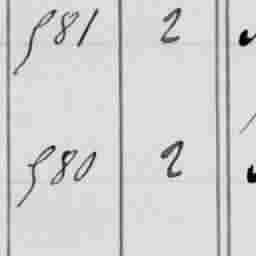 581 2
580 2